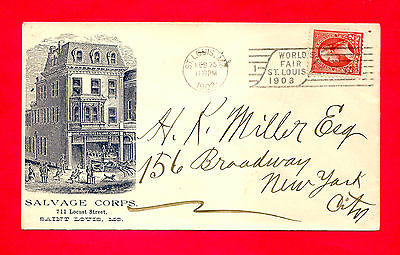 ST. LOUIS, MO.
FEB 25
11 PM
1902
1
WORLD'S
FAIR
ST. LOUIS
1903
H. K. Miller Esq
156 Broadway
New York
City
SALVAGE CORPS.
711 Locust Street,
SAINT LOUIS, MO.